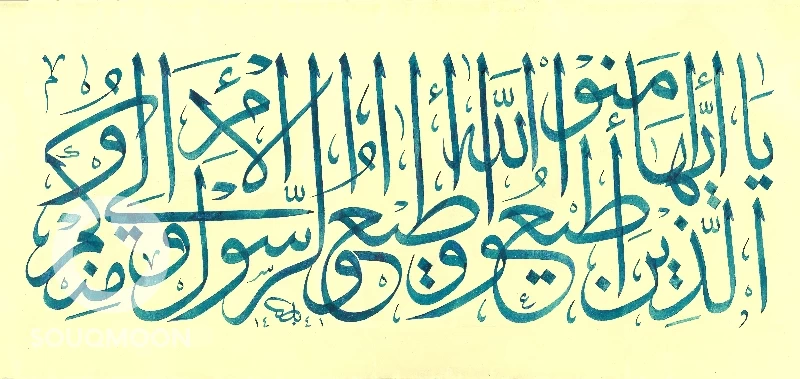 يَا أَيُّهَا الَّذِينَ آمَنُوا أَطِيعُوا اللَّهَ وَأَطِيعُوا الرَّسُولَ وَأُولِي الْأَمْرِ مِنكُمْ
١٤٤١
SOUQMOON